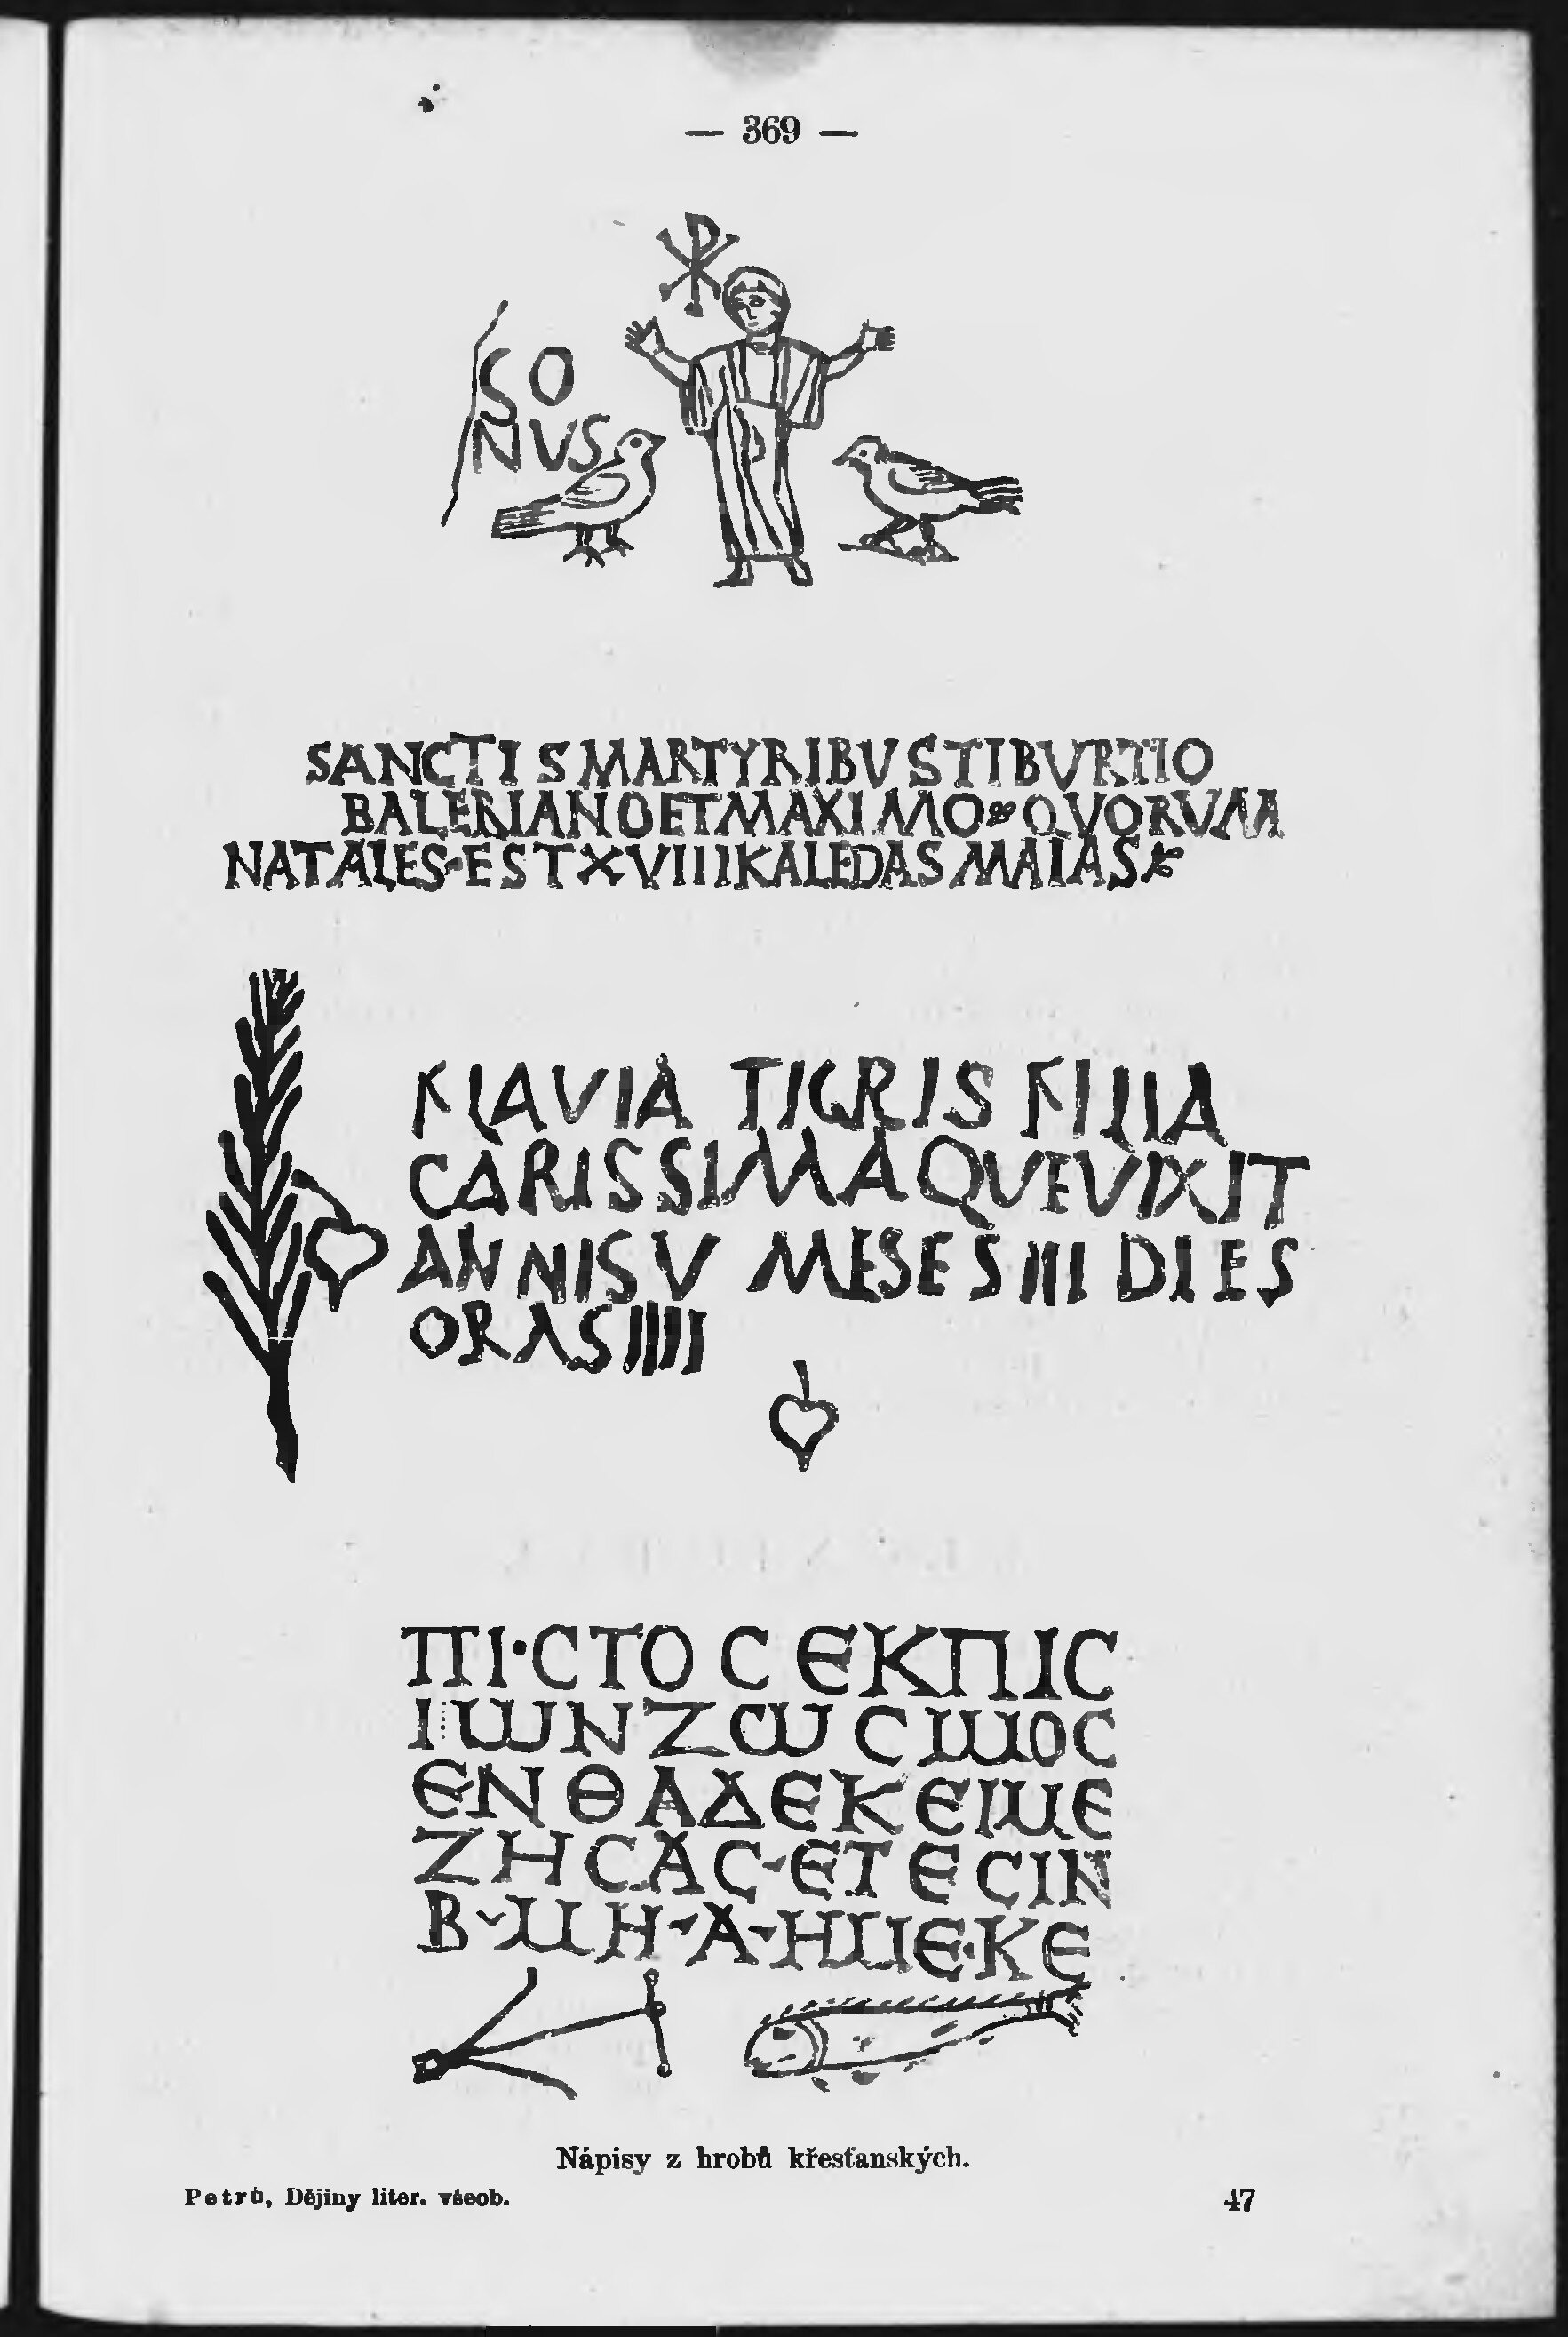 — 369 —
SO
NUS
SANCTIS MARTYRIBVS TIBVRTIO
BALERIANO ET MAXIMO QVORVM
NATALES·EST XVIIII KALEDAS MAIAS
FLAVIA TIGRIS FILIA
CARISSIMA QUE VIXIT
ANNIS V MESES III DIES
ORAS IIII
ΠΙ·CΤΟC ЄΚ ΠΙC
ΙⲰΝ ΖⲰCⲘΟC
ЄΝΘΑΔЄ ΚЄΙⲘЄ
ΖΗCΑC·ЄΤЄCΙΝ
Β·ⲘΗ·Α·ΗⲘЄ·ΚЄ
Nápisy z hrobů křesťanských.
Petrů, Dějiny liter. všeob. 47